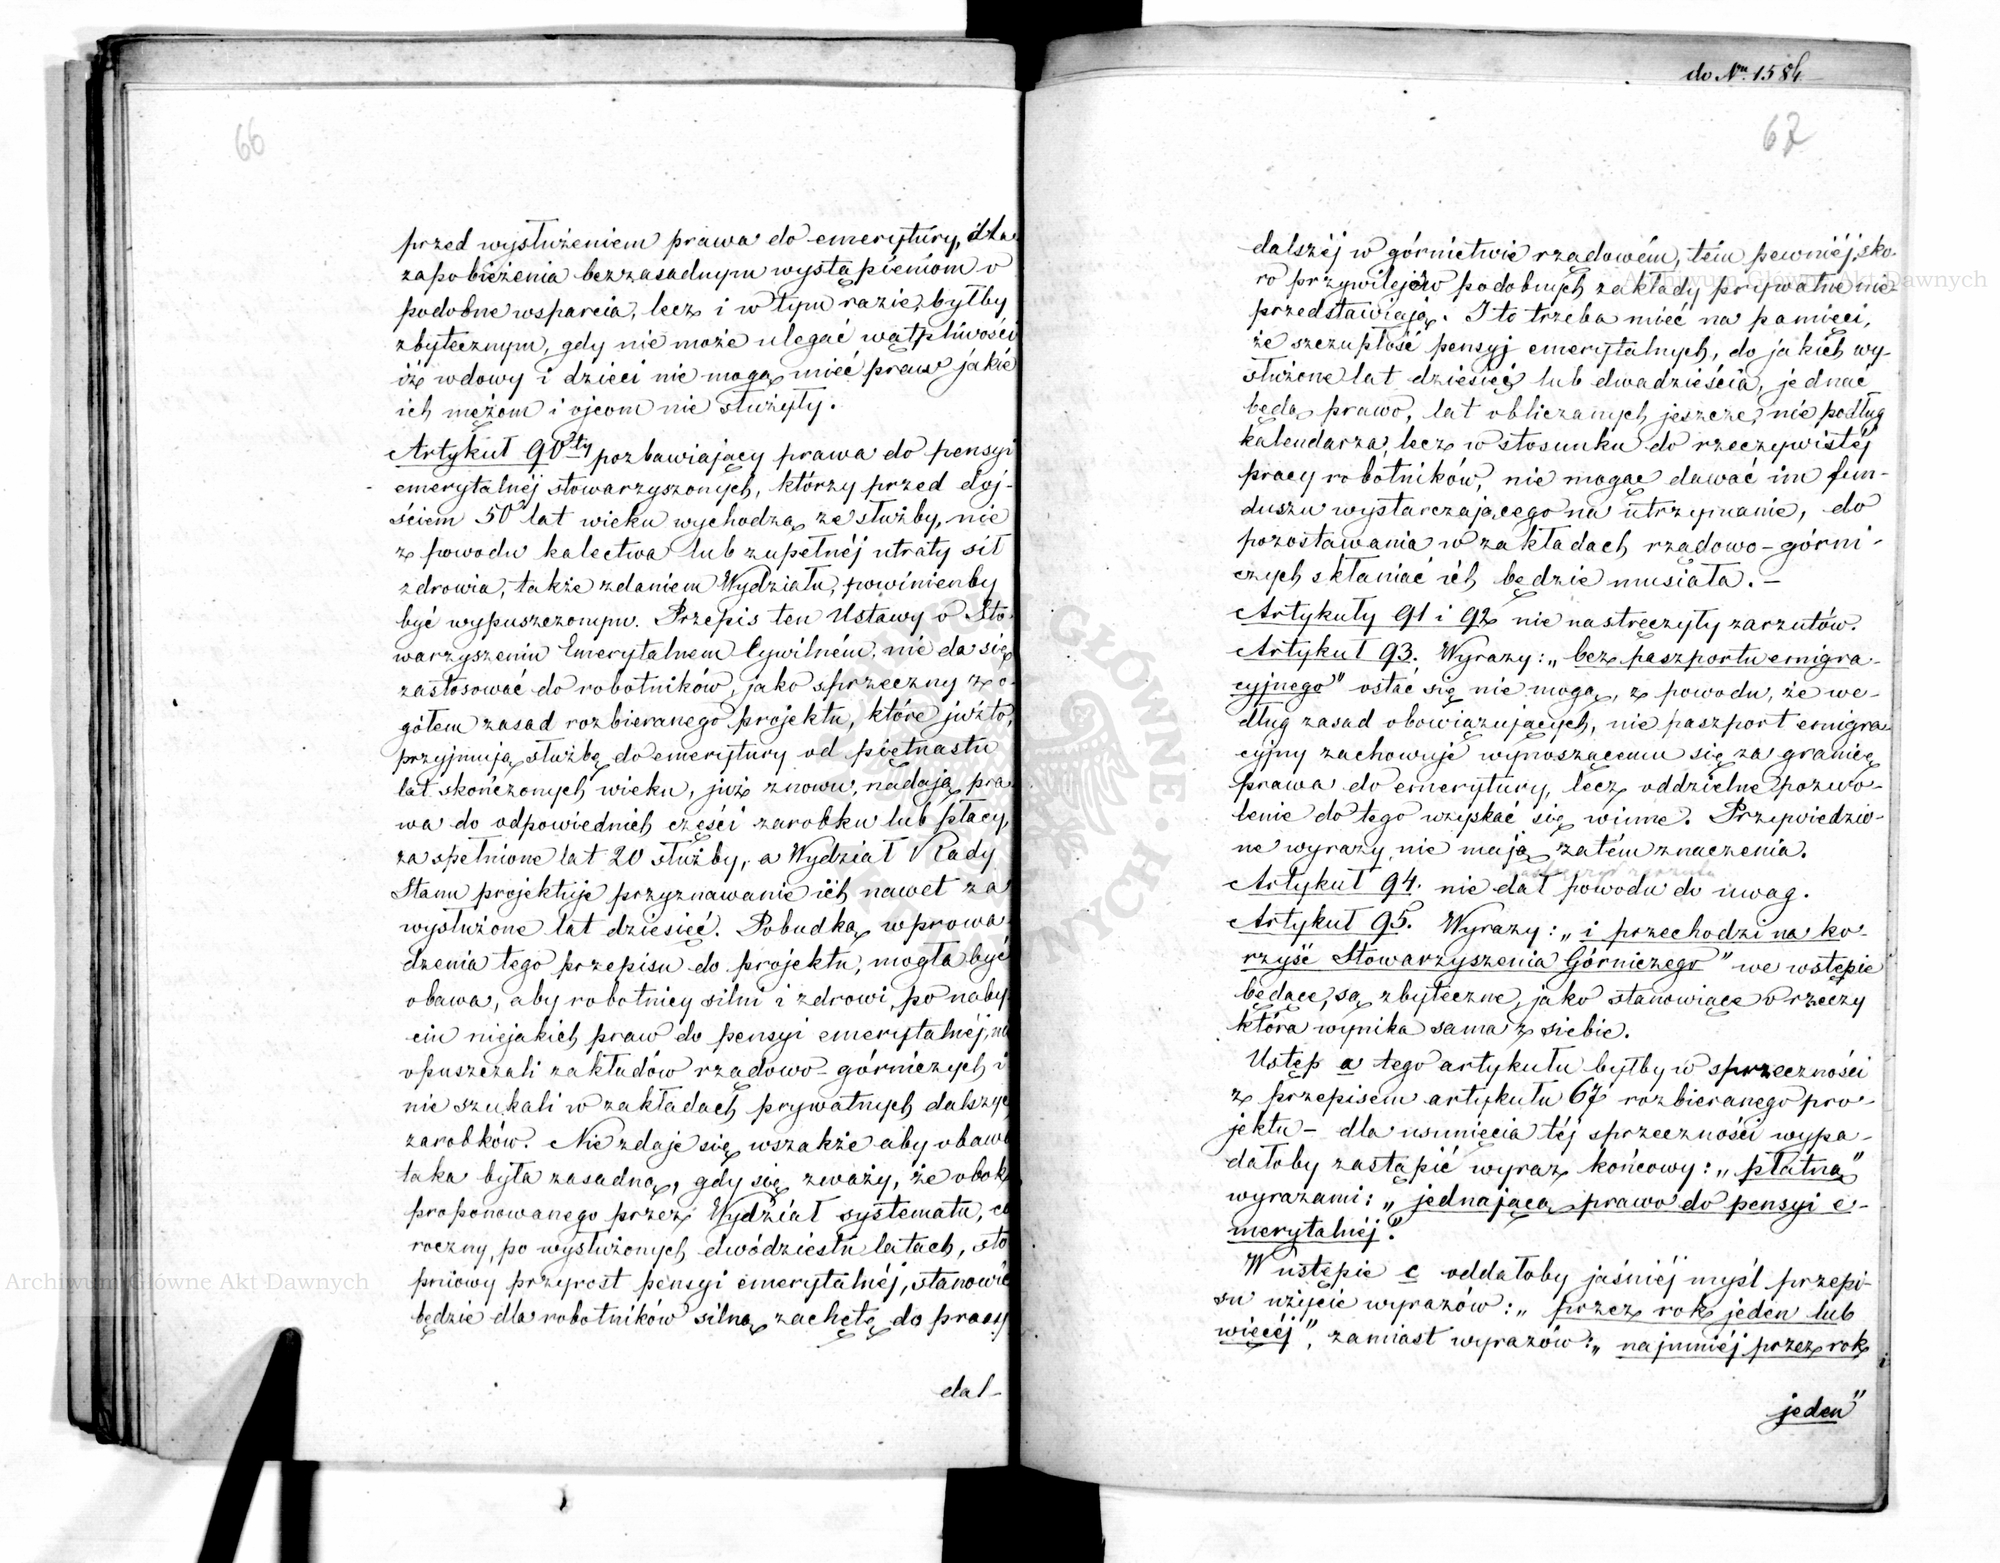 66
przed wysłużeniem prawa do emerytury, dla
zapobieżenia bezzasadnym wystąpieniom o
podobne wsparcia, lecz i w tym razie, byłby
zbytecznym, gdy nie może ulegać wątpliwości
iż wdowy i dzieci nie mogą mieć praw jakie
ich mężom i ojcom nie służyły.
Artykuł 90ty pozbawiający prawa do pensyi
emerytalnéj stowarzyszonych, którzy przed doj-
ściem 50 lat wieku wychodzą ze służby, nie
z powodu kalectwa lub zupełnéj utraty sił
zdrowia, także zdaniem Wydziału, powinienby
być wypuszczonym. Przepis ten Ustawy o Sto-
warzyszeniu Emerytalnem Cywilném, nie da się
zastosować do robotników, jako sprzeczny z o-
gółem zasad rozbieranego projektu, które już to,
przyjmują służbę do emerytury od piętnastu
lat skończonych wieku, już znowu, nadają pra-
wa do odpowiednich części zarobku lub płacy,
za spełnione lat 20 służby, a Wydział Rady
Stanu projektuje przyznawanie ich nawet za
wysłużone lat dziesięć. Pobudką wprowa-
dzenia tego przepisu do projektu, mogła być
obawa, aby robotnicy silni i zdrowi, po naby-
ciu niejakich praw do pensyi emerytalnéj, nie
opuszczali zakładów rządowo-górniczych i
nie szukali w zakładach prywatnych dalszych
zarobków. Nie zdaje się wszakże aby obawa
taka była zasadną, gdy się zważy, że obok
proponowanego przez Wydział systematu, co
roczny, po wysłużonych dwódziestu latach, sto
pniowy przyrost pensyi emerytalnéj, stanowić
będzie dla robotników silną zachętę do pracy
dal-
do Nru 1584
67
dalszéj w górnictwie rządowém, tém pewniéj, sko-
ro przywilejów podobnych zakłady prywatne nie
przedstawiają. I to trzeba mieć na pamięci,
że szczupłość pensyj emerytalnych, do jakich wy-
służone lat dziesięć lub dwadzieścia, jednać
będą prawo, lat obliczanych jeszcze, nie podług
kalendarza, lecz w stosunku do rzeczywistéj
pracy robotników, nie mogąc dawać im fun-
duszu wystarczającego na utrzymanie, do
pozostawania w zakładach rządowo-górni-
czych skłaniać ich będzie musiała. —
Artykuły 91 i 92 nie nastręczyły zarzutów.
Artykuł 93. Wyrazy: „bez paszportu emigra-
cyjnego" ostać się nie mogą, z powodu, że we-
dług zasad obowiązujących, nie paszport emigra-
cyjny zachowuje wynoszącemu się za granicę
prawa do emerytury, lecz oddzielne pozwo-
lenie do tego wzyskać się winne. Przywiedzio-
ne wyrazy, nie mają zatém znaczenia.
Artykuł 94. nie dał powodu do uwag.
Artykuł 95. Wyrazy: „i przechodzi na ko-
rzyść Stowarzyszenia Górniczego" we wstępie
będące, są zbyteczne, jako stanowiące o rzeczy
która wynika sama z siebie.
Ustęp a tego artykułu byłby w sprzeczności
z przepisem artykułu 67 rozbieranego pro-
jektu – dla usunięcia téj sprzeczności wypa-
dałoby zastąpić wyraz końcowy: „płatną"
wyrazami: „jednającą prawo do pensyi e-
merytalnéj."
W ustępie c oddałoby jaśniéj myśl przepi-
su użycie wyrazów: „przez rok jeden lub
więcéj", zamiast wyrazów: „najmniéj przez rok
jeden"
Archiwum Główne Akt Dawnych
Archiwum Główne Akt Dawnych